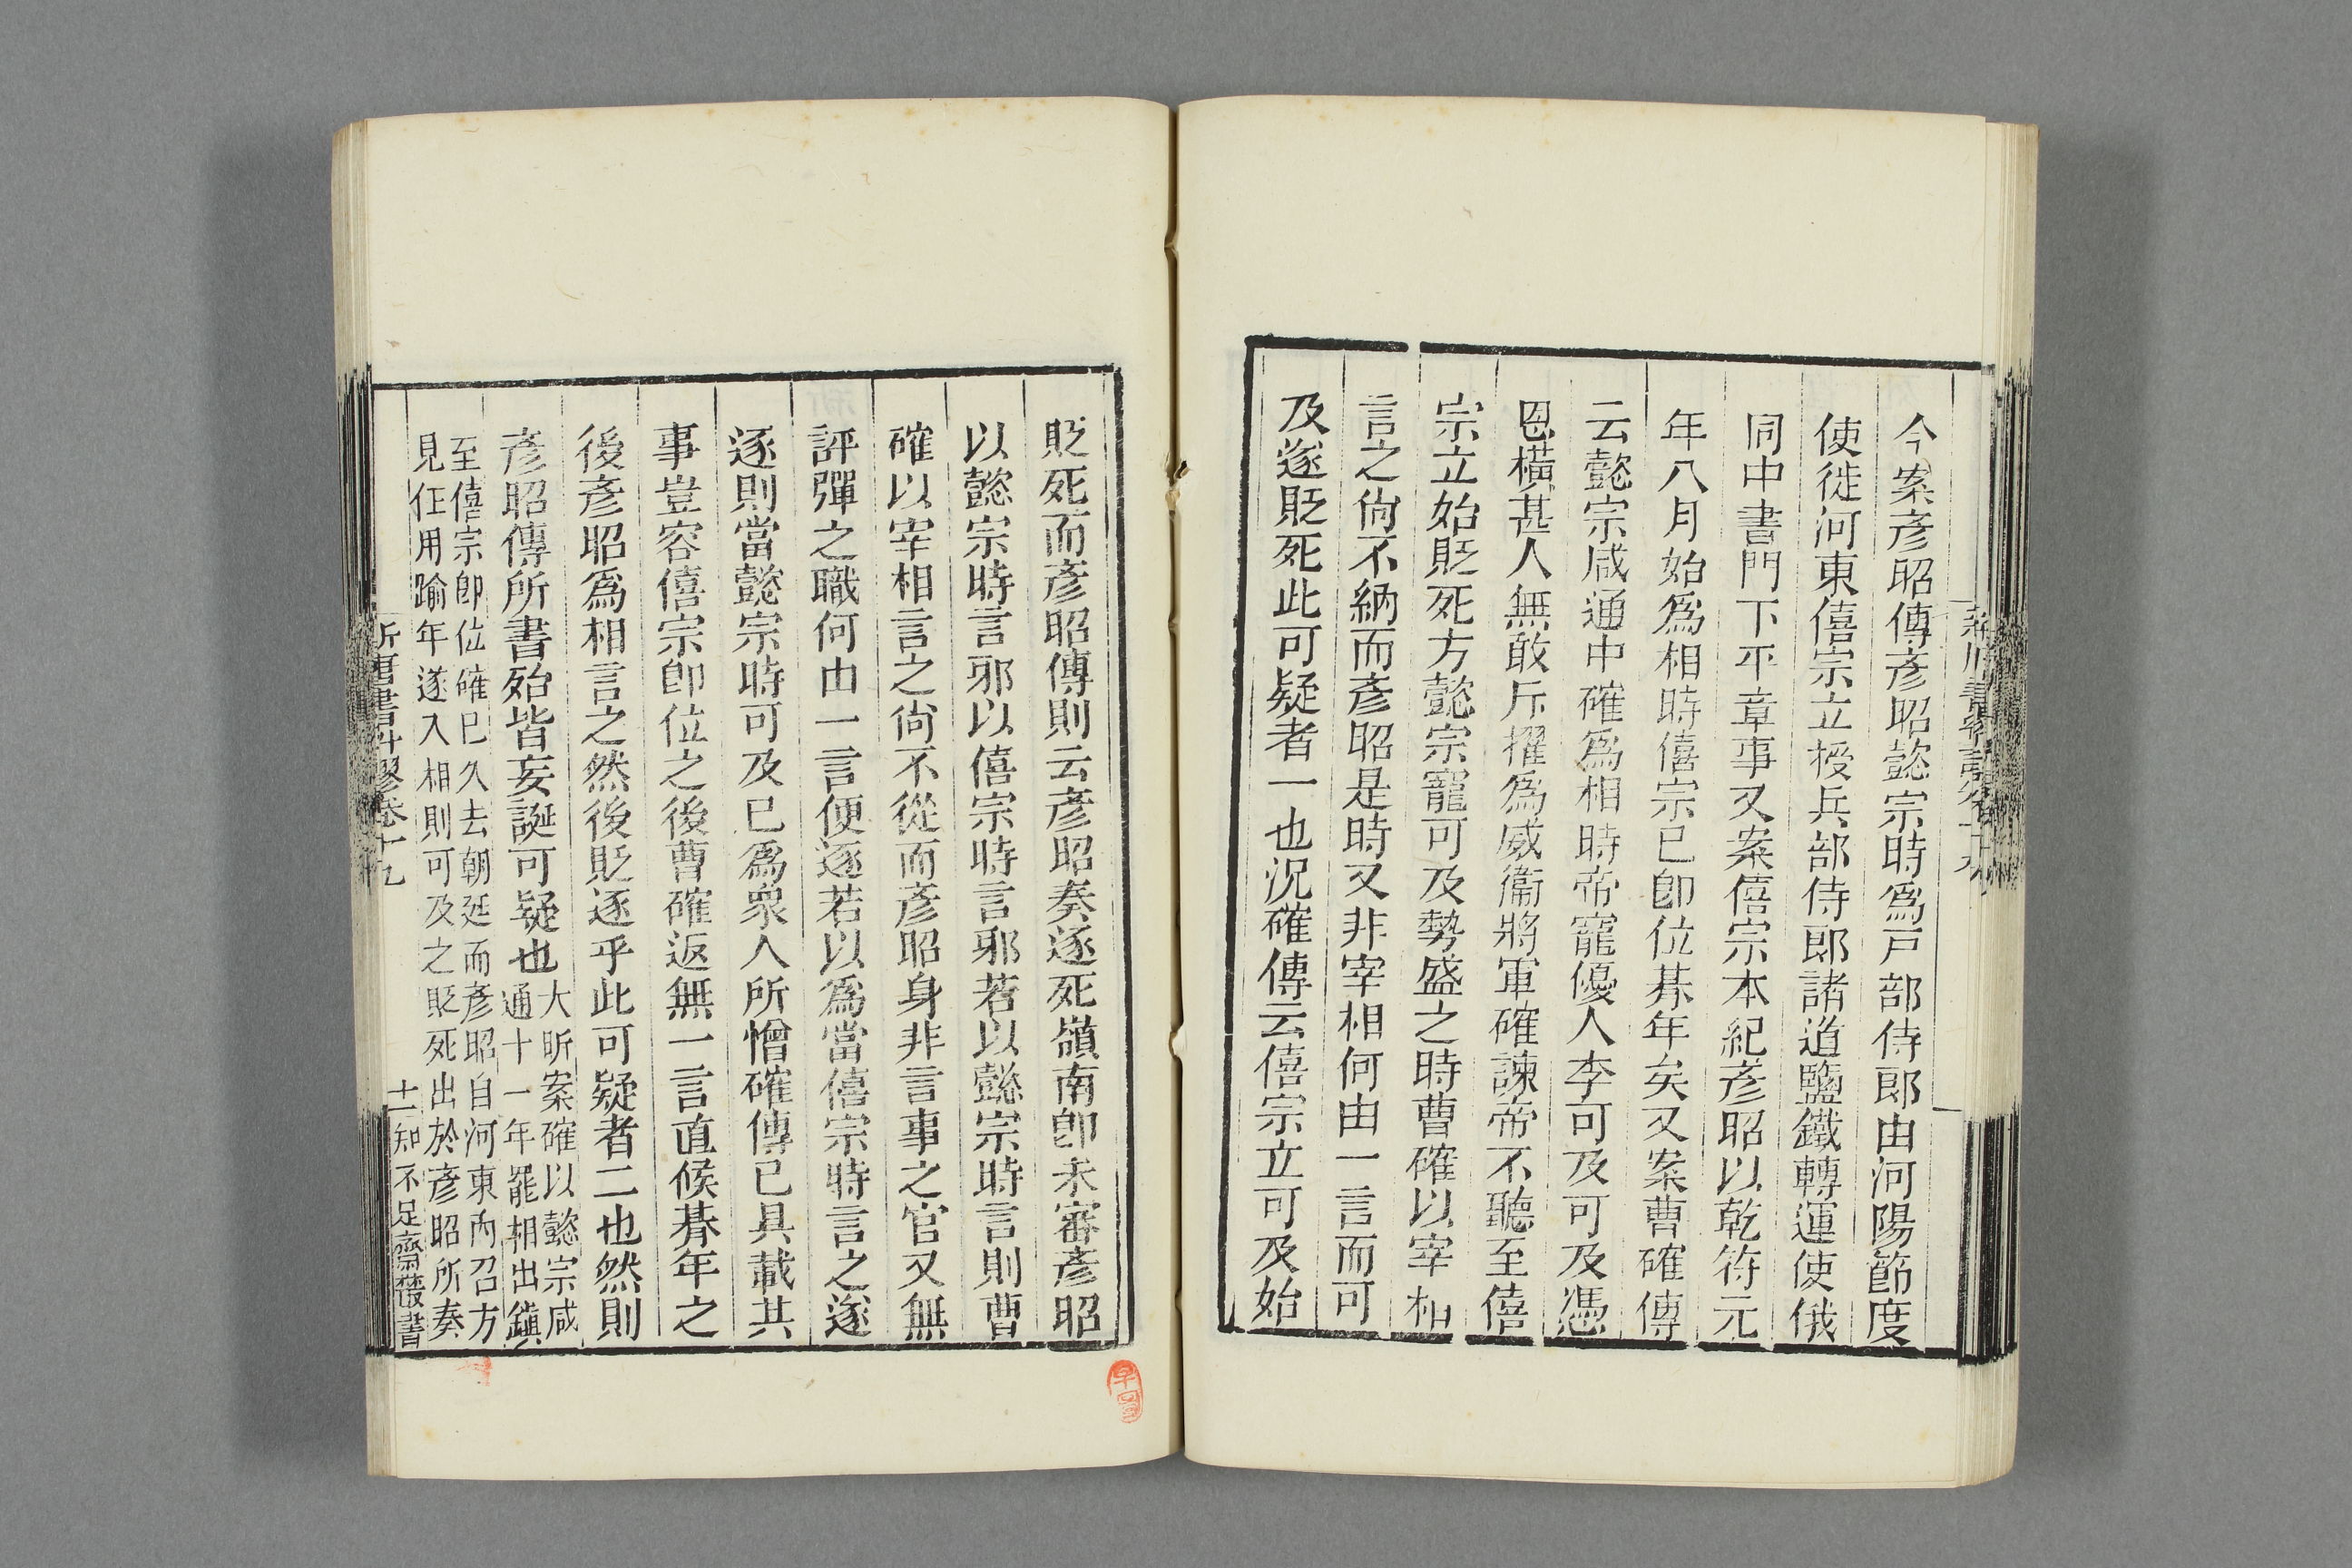 今案彦昭傳彦昭懿宗時爲戸部侍郎由河陽節度
使徙河東僖宗立授兵部侍郎諸道鹽鐵轉運使俄
同中書門下平章事又案僖宗本紀彦昭以乾符元
年八月始爲相時僖宗已卽位朞年矣又案曹確傳
云懿宗咸通中確爲相時帝寵優人李可及可及憑
恩橫甚人無敢斥擢爲威衞將軍確諫帝不聽至僖
宗立始貶死方懿宗寵可及勢盛之時曹確以宰相
言之尙不納而彦昭是時又非宰相何由一言而可
及遂貶死此可疑者一也況確傳云僖宗立可及始
貶死而彦昭傳則云彦昭奏逐死嶺南卽未審彦昭
以懿宗時言邪以僖宗時言邪若以懿宗時言則曹
確以宰相言之尙不從而彦昭身非言事之官又無
評彈之職何由一言便逐若以爲當僖宗時言之遂
逐則當懿宗時可及已爲衆人所憎確傳已具載其
事豈容僖宗卽位之後曹確返無一言直候朞年之
後彦昭爲相言之然後貶逐乎此可疑者二也然則
彦昭傳所書殆皆妄誕可疑也
大昕案確以懿宗咸
通十一年罷相出鎭
至僖宗卽位確已久去朝廷而彦昭自河東內召方
見任用踰年遂入相則可及之貶死出於彦昭所奏
新唐書糾謬卷十九
十一
知不足齋叢書